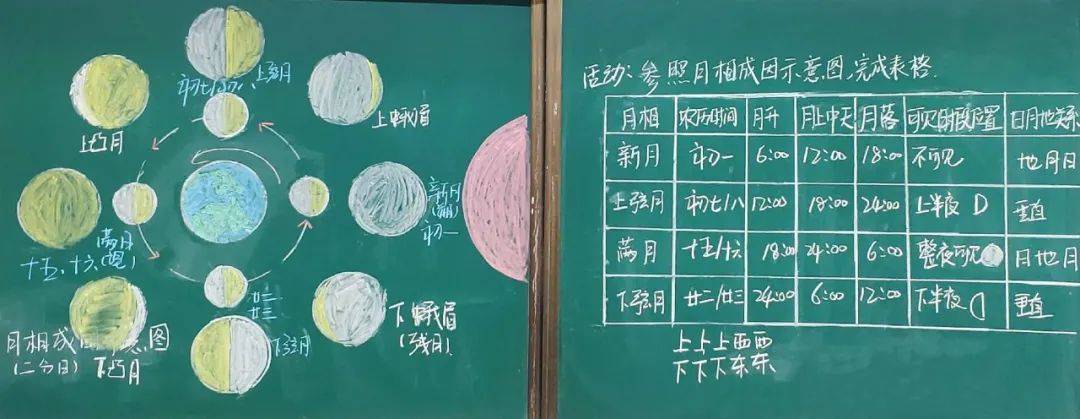 初七/初八
上弦月
上凸月
上蛾眉
新月
(朔)
初一
满月
十五、十六(望)
廿二
廿三
下弦月
下蛾眉
(残月)
月相成因示意图
(二分日)
下凸月
活动:参照月相成因示意图,完成表格.
月相 农历时间 月升 月上中天 月落 可见时段位置 日月地关系
新月 初一 6:00 12:00 18:00 不可见 地月日
上弦月 初七/八 12:00 18:00 24:00 上半夜 D 垂直
满月 十五/十六 18:00 24:00 6:00 整夜可见 日地月
下弦月 廿二/廿三 24:00 6:00 12:00 下半夜 垂直
上上上西西
下下下东东